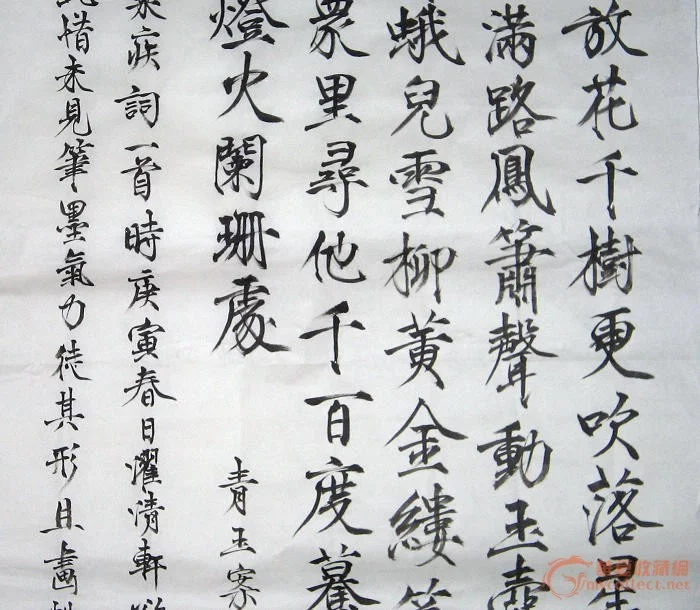 放花千樹更吹落星
滿路鳳簫聲動玉壺
蛾兒雪柳黃金縷笑
眾里尋他千百度驀
燈火闌珊處
青玉案
疾詞一首時庚寅春日濯清軒
惜未見筆墨氣力徒其形且畵